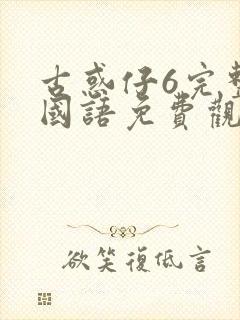 古惑仔6完整
國語免費觀
欲笑復低言